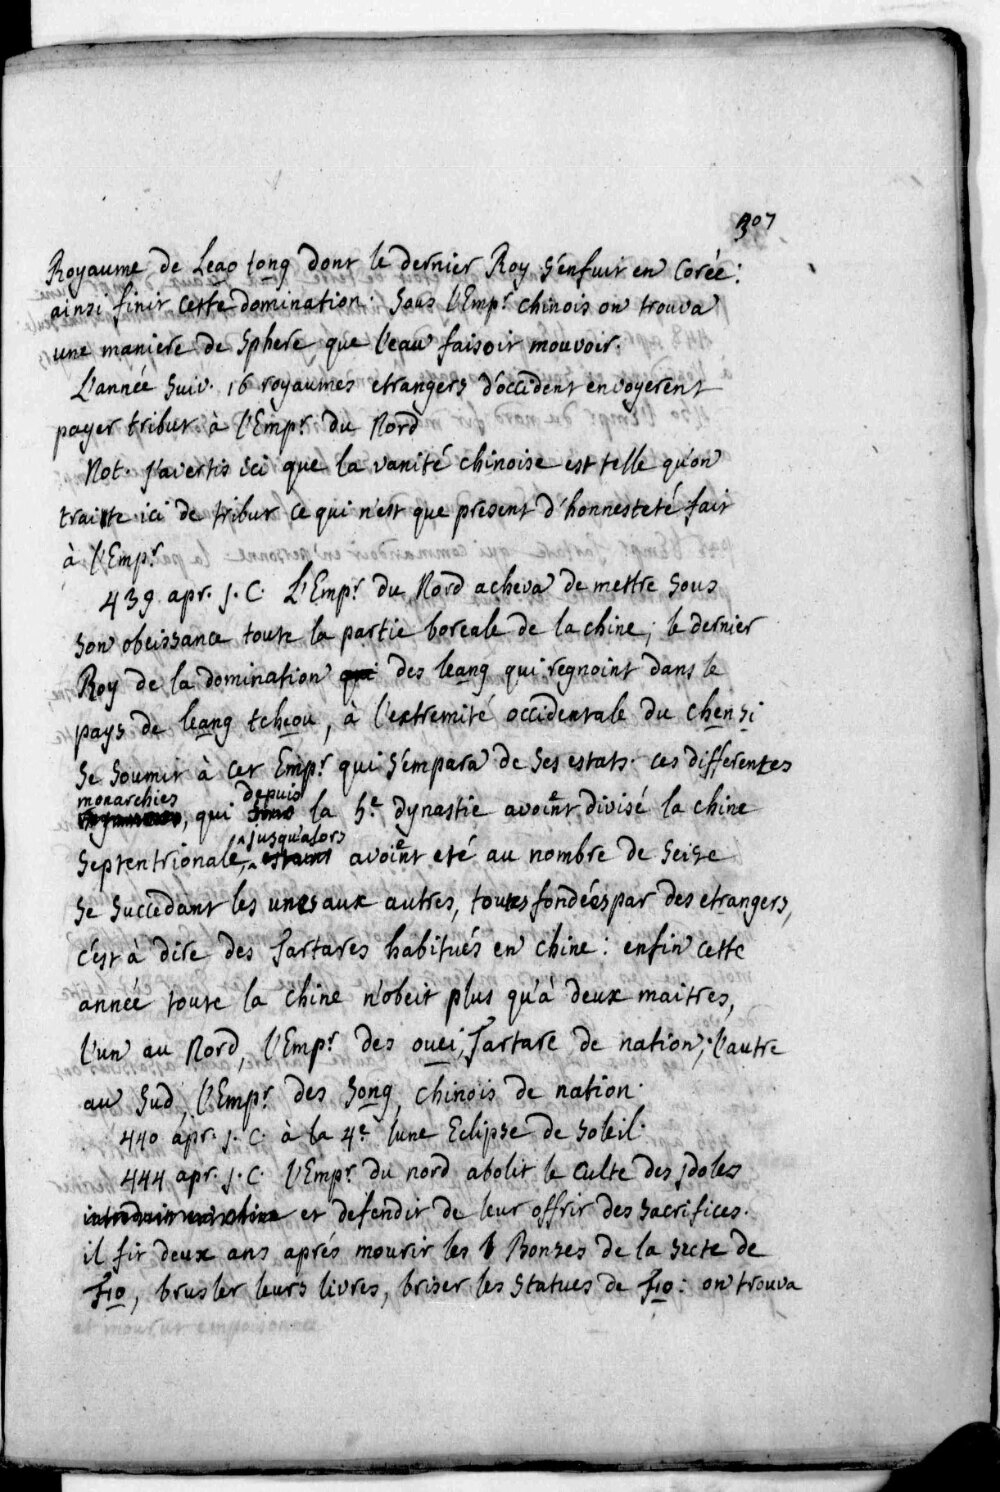 307
Royaume de Leao tong dont le dernier Roy s'enfuit en Corée:
ainsi finit cette domination. Sous l'Empr chinois on trouva
une maniere de sphere que l'eau faisoit mouvoir.
L'année suiv. 16 royaumes etrangers d'occident envoyerent
payer tribut à l'Empr du Nord
Not. j'avertis ici que la vanité chinoise est telle qu'on
traitte ici de tribut ce qui n'est que present d'honnesteté fait
à l'Empr
439 apr. J. C. L'Empr du Nord acheva de mettre sous
son obeissance toute la partie boreale de la chine; le dernier
Roy de la domination qui des leang qui regnoint dans le
pays de leang tcheou, à l'extremité occidentale du chensi
se soumit à cet Empr qui s'empara de ses estats. ces differentes
monarchies depuis
, qui sous la 5e dynastie avoient divisé la chine
jusqu'alors
septentrionale, estaint avoient eté au nombre de seise
se succedant les unes aux autres, toutes fondées par des etrangers,
c'est à dire des Tartares habitués en chine: enfin cette
année toute la chine n'obeit plus qu'à deux maitres,
l'un au Nord, l'Empr des ouei, Tartare de nation; l'autre
au Sud, l'Empr des Song, chinois de nation.
440 apr. J. C. à la 4e lune Eclipse de soleil.
444 apr. J. C. l'Empr du nord abolit le culte des idoles
et defendit de leur offrir des sacrifices.
il fit deux ans aprés mourir les Bonzes de la secte de
Fo, brusler leurs livres, briser les statues de Fo: on trouva